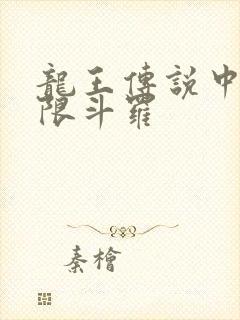 龍王傳説中
限斗羅
秦檜